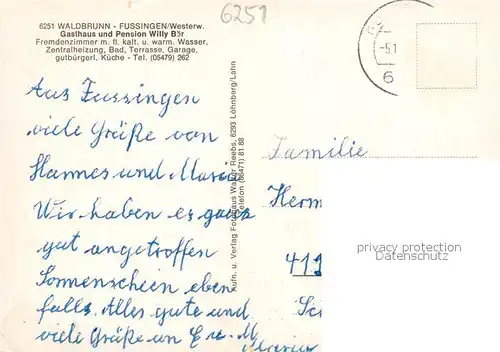 6251
6251 WALDBRUNN - FUSSINGEN/Westerw.
Gasthaus und Pension Willy Bär
Fremdenzimmer m. fl. kalt. u. warm. Wasser,
Zentralheizung, Bad, Terrasse, Garage,
gutbürgerl. Küche - Tel. (06479) 262
-5.1
6
Aus Fussingen
viele Grüße von
Hannes und Maria
Wir haben es ganz
gut angetroffen
Sonnenschein eben
falls. Alles gute und
viele Grüße an
Aufn. u. Verlag Fotohaus Walter Reebs, 6293 Löhnberg/Lahn
Telefon (06471) 81 88
Familie
Herm
411
privacy protection
Datenschutz